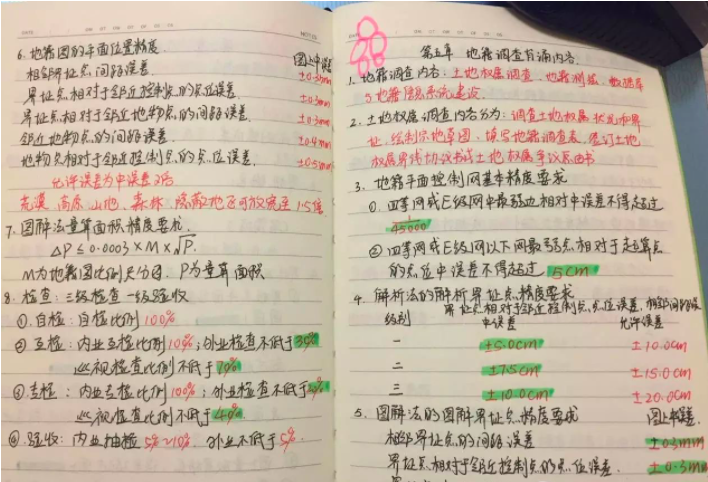 6. 地籍图的平面位置精度. 图上中误差
相邻界址点间距误差 ±0.3mm
界址点相对于邻近控制点的点位误差. ±0.3mm
界址点相对于邻近地物点的间距误差. ±0.3mm
邻近地物点的间距误差. ±0.4mm
地物点相对于邻近控制点的点位误差. ±0.5mm
允许误差为中误差2倍
荒漠 高原 山地 森林 隐蔽地区可放宽至1.5倍
7. 图解法量算面积精度要求.
△P≤0.0003×M×√P.
M为地籍图比例尺分母. P为量算面积
8. 检查: 三级检查一级验收
①.自检: 自检比例100%
②互检: 内业互检比例100%; 外业检查不低于30%
巡视检查比例不低于70%
③专检: 内业专检比例100%; 外业检查不低于
巡视检查比例不低于40%
④.验收: 内业抽检5%~10%. 外业不低于5%.
第五章 地籍调查普通内容.
1. 地籍调查内容: 土地权属调查、地籍测绘、数据库
与地籍信息系统建设.
2. 土地权属调查内容分为: 调查土地权属状况和界
址, 绘制宗地草图, 填写地籍调查表, 签订土地
权属界线协议书或土地权属争议原由书
3. 地籍平面控制网基本精度要求
①. 四等网或E级网中最弱边相对中误差不得超过
1/45000
②四等网或E级网以下网最弱点相对于起算点
的点位中误差不得超过5cm
4. 解析法的解析界址点精度要求
级别 界址点相对于邻近控制点点位误差, 相邻间距误
中误差 允许误差
一 ±5.0cm ±10.0cm
二 ±7.5cm ±15.0cm
三 ±10.0cm ±20.0cm
5. 图解法的图解界址点精度要求 图上中误差.
相邻界址点的间距误差 ±0.3mm
界址点相对于邻近控制点的点位误差. ±0.3mm